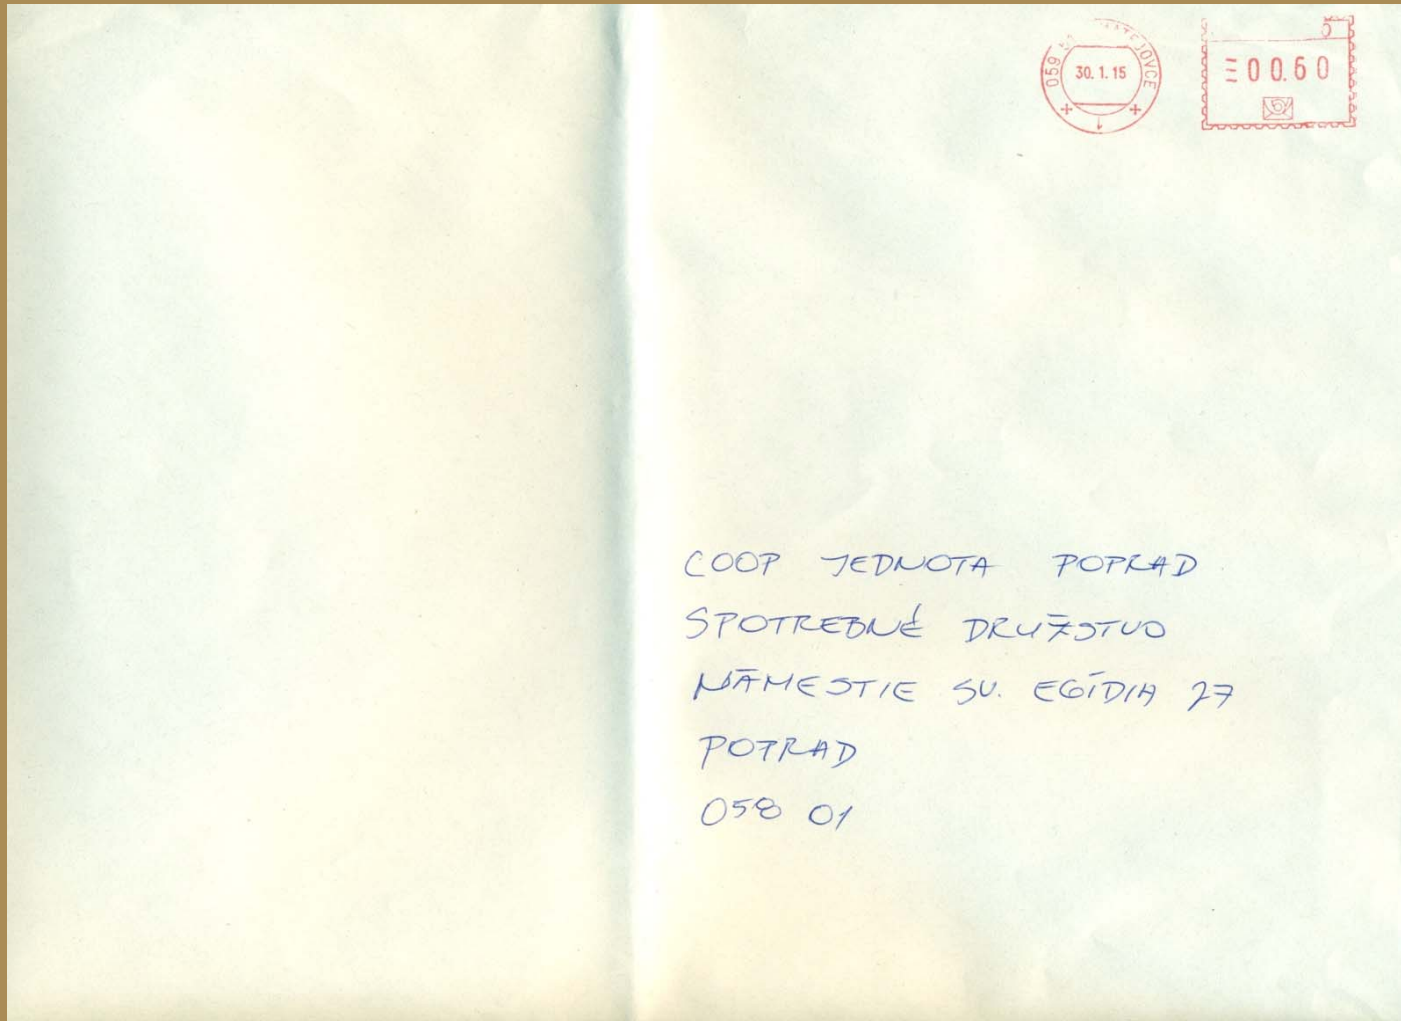 30.1.15
00.60
COOP JEDNOTA POPRAD
SPOTREBNÉ DRUŽSTVO
NÁMESTIE SV. EGÍDIA 27
POPRAD
058 01